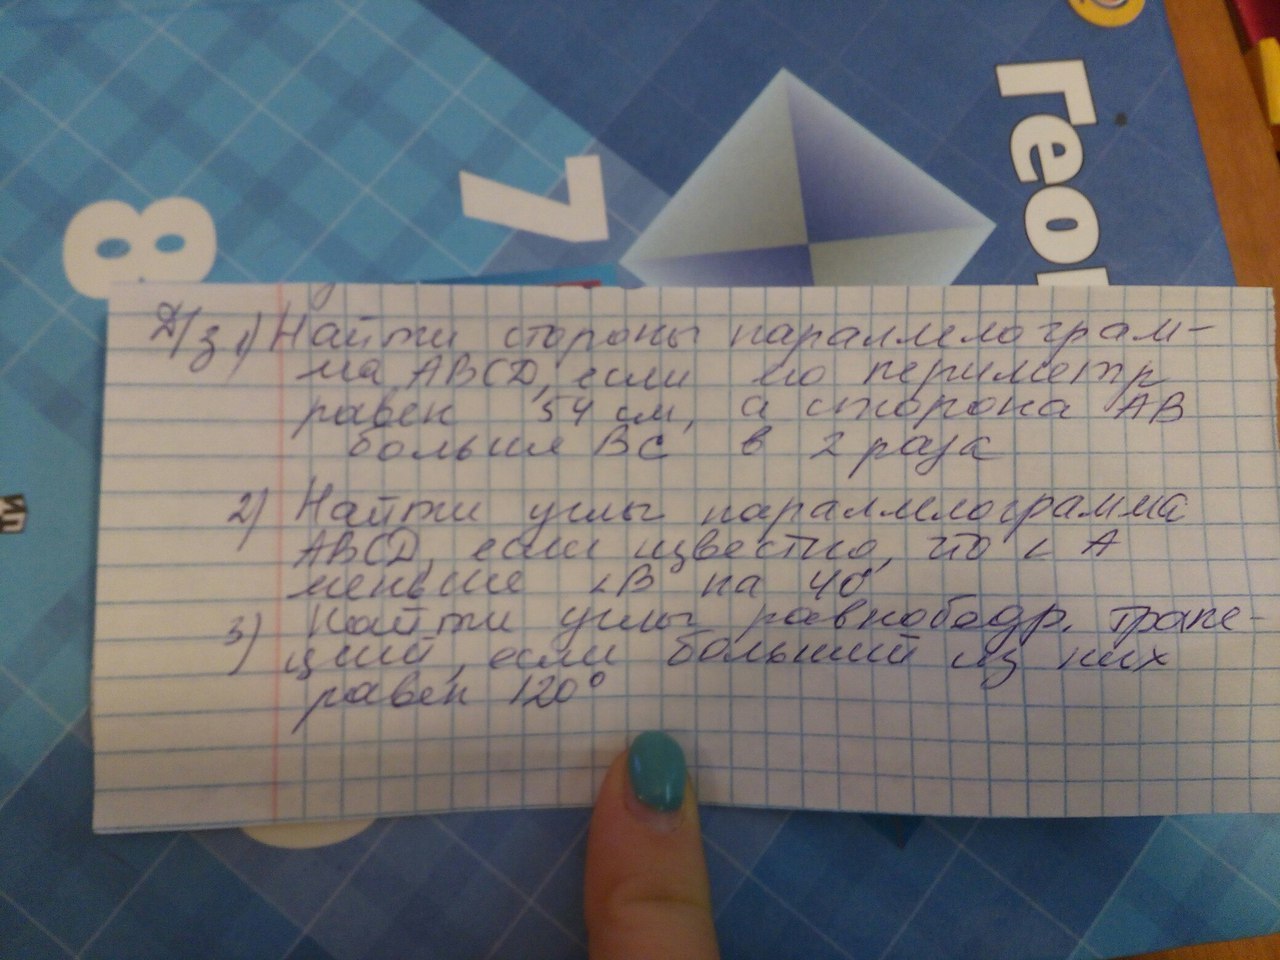 Гео
7
8
Д/з 1) Найти стороны параллелограм-
ма ABCD, если его периметр
равен 54 см, а сторона AB
больше BC в 2 раза
2) Найти углы параллелограмма
ABCD, если известно, что ∠ A
меньше ∠B на 40°
3) Найти углы равнобедр. трапе-
ций, если больший из них
равен 120°